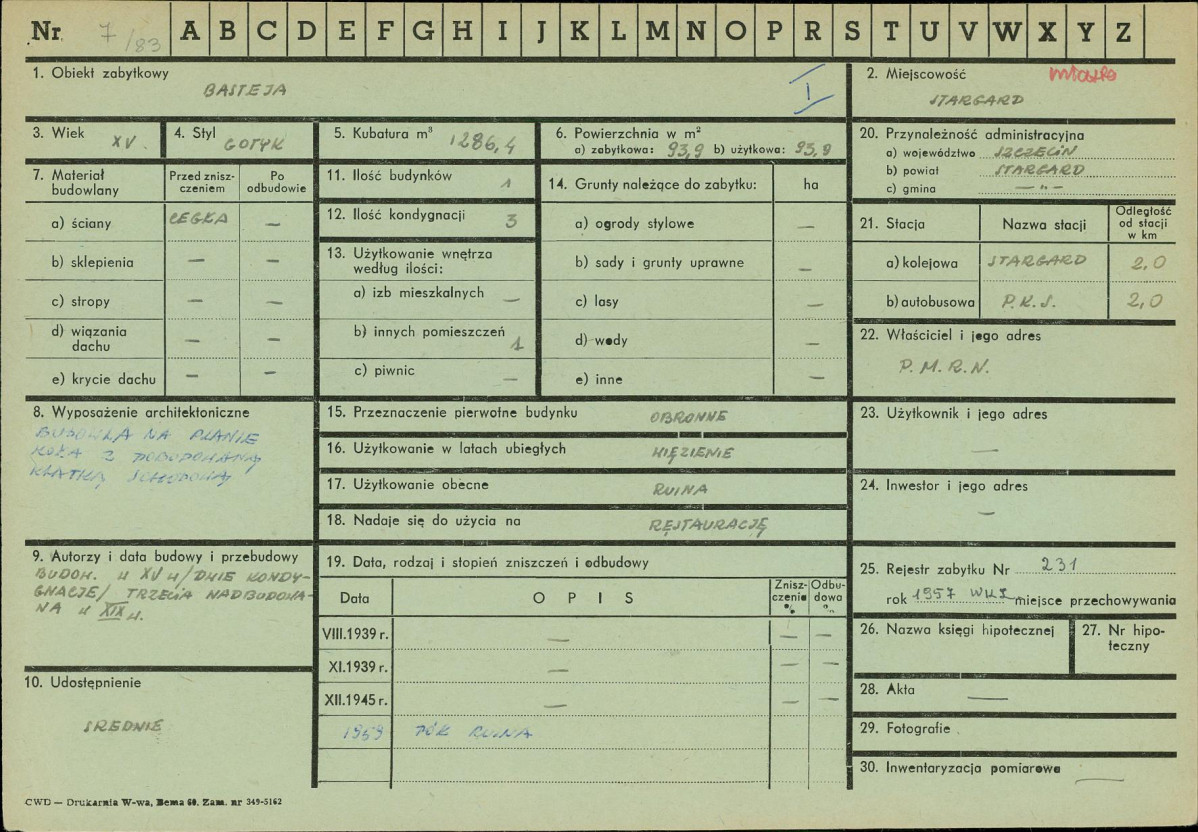 Nr 7/83 A B C D E F G H I J K L M N O P R S T U V W X Y Z
1. Obiekt zabytkowy
BASTEJA
I
2. Miejscowość miasto
STARGARD
3. Wiek
XV.
4. Styl
GOTYK
5. Kubatura m³
1286,4
6. Powierzchnia w m²
a) zabytkowa: 93,9 b) użytkowa: 93,9
20. Przynależność administracyjna
a) województwo SZCZECIN
b) powiat STARGARD
c) gmina — " —
7. Materiał budowlany
Przed zniszczeniem
Po odbudowie
a) ściany CEGŁA —
b) sklepienia — —
c) stropy — —
d) wiązania dachu — —
e) krycie dachu — —
11. Ilość budynków 1
12. Ilość kondygnacji 3
13. Użytkowanie wnętrza
według ilości:
a) izb mieszkalnych —
b) innych pomieszczeń 1
c) piwnic —
14. Grunty należące do zabytku: ha
a) ogrody stylowe —
b) sady i grunty uprawne —
c) lasy —
d) wody —
e) inne —
21. Stacja
Nazwa stacji
Odległość od stacji w km
a) kolejowa STARGARD 2,0
b) autobusowa P.K.S. 2,0
22. Właściciel i jego adres
P.M.R.N.
8. Wyposażenie architektoniczne
BUDOWLA NA PLANIE
KOŁA Z DOBUDOWANĄ
KLATKĄ SCHODOWĄ
15. Przeznaczenie pierwotne budynku OBRONNE
16. Użytkowanie w latach ubiegłych WIĘZIENIE
17. Użytkowanie obecne RUINA
18. Nadaje się do użycia na RESTAURACJĘ
23. Użytkownik i jego adres
—
24. Inwestor i jego adres
—
9. Autorzy i data budowy i przebudowy
BUDOW. W XV W/DWIE KONDY-
GNACJE/ TRZECIA NADBUDOWA-
NA W XIX W.
19. Data, rodzaj i stopień zniszczeń i odbudowy
Data
O P I S
Zniszczenie %
Odbudowa %
VIII.1939 r. — — —
XI.1939 r. — — —
XII.1945 r. — —
1959 RUINA
25. Rejestr zabytku Nr 231
rok 1957 WKZ miejsce przechowywania
26. Nazwa księgi hipotecznej
27. Nr hipoteczny
10. Udostępnienie
ŚREDNIE
28. Akta —
29. Fotografie
30. Inwentaryzacja pomiarowa —
CWD — Drukarnia W-wa, Bema 60. Zam. nr 349-5162